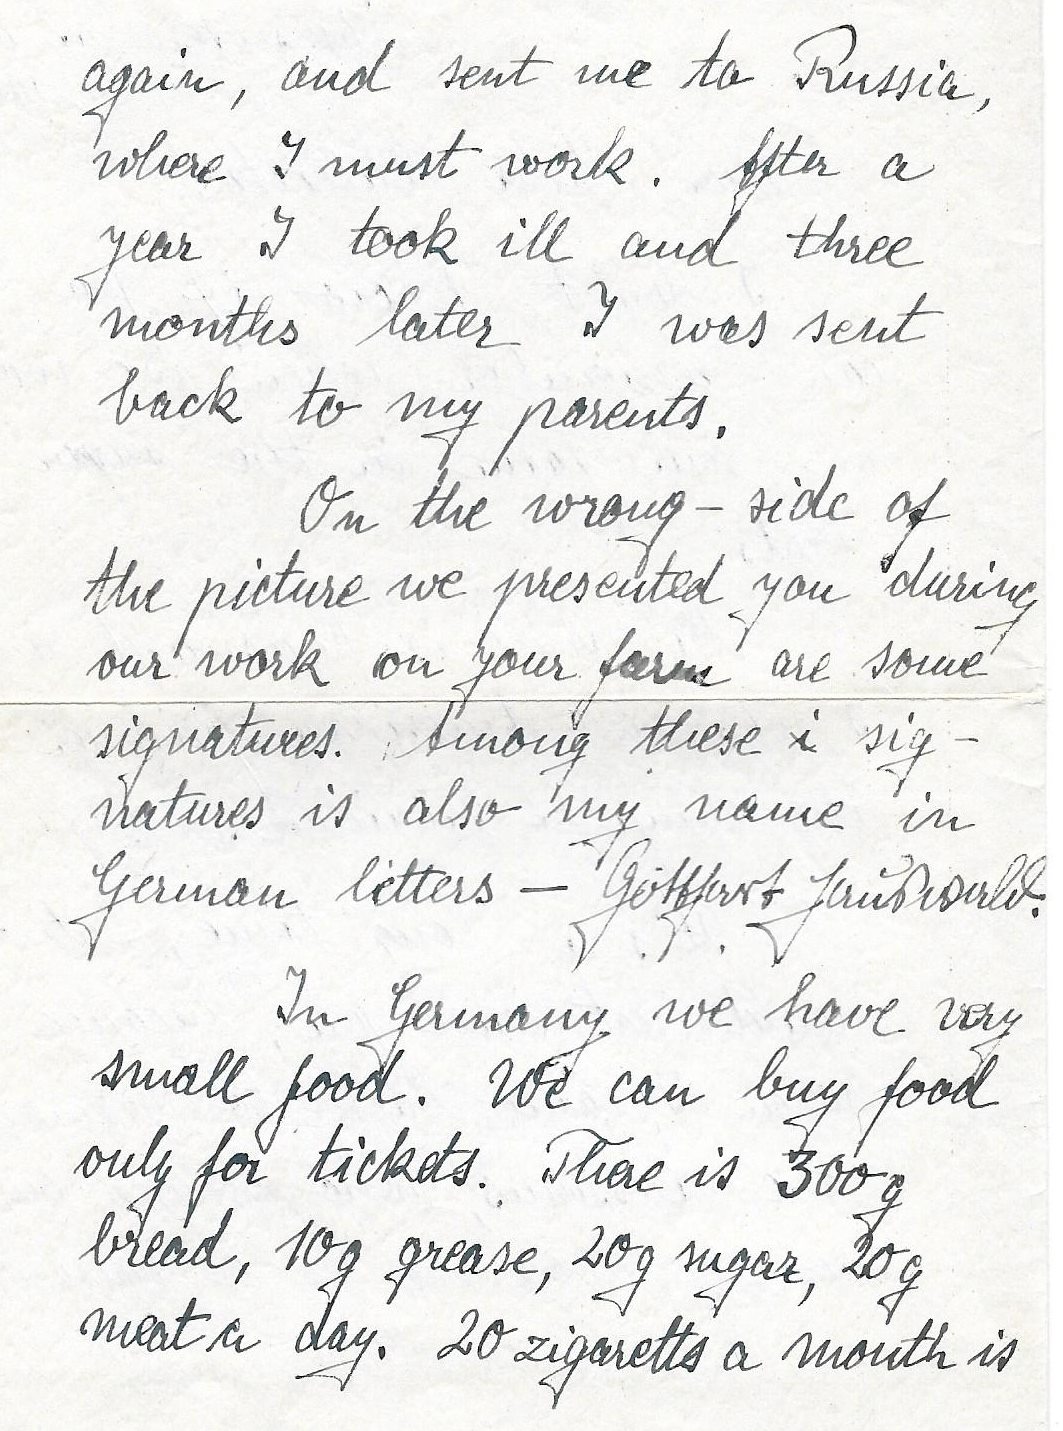 again, and sent me to Russia,
where I must work. After a
year I took ill and three
months later I was sent
back to my parents.
On the wrong-side of
the picture we presented you during
our work on your farm are some
signatures. Among these sig-
natures is also my name in
German letters —
In Germany we have very
small food. We can buy food
only for tickets. There is 300g
bread, 10g grease, 20g sugar, 20g
meat a day. 20 zigaretts a month is